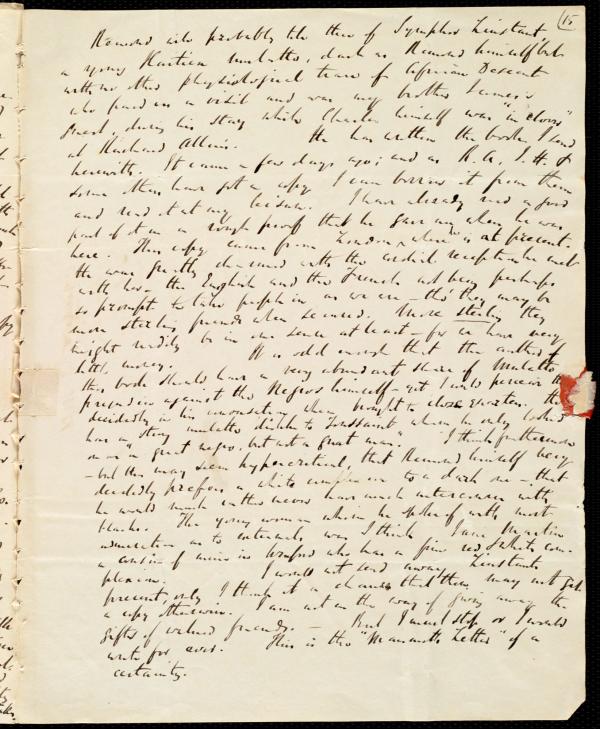 (15
Remond is probably the hero of Symphor Linstant,
a young Haytien mulatto, dark as Remond himself but
with no other physiological trace of African Descent
who paid us a visit and was my brother James's
Guest, during his stay while Charles himself was "in clover"
at Richard Allen's. He has written the book I send
herewith. It came a few days ago; and as R. A., J. H. &
some others have got a copy I can borrow it from them
and read it at my leisure. I have already read a good
part of it in a rough proof that he gave me when he was
here. This copy came from London, where he is at present.
He was greatly charmed with the cordial reception he met
with here – the English and the French not being perhaps
so prompt to take people in as we are – tho' they may be
more sterling friends when secured. More sterling they
might readily be in one sense at least – for we have very
little money. It is odd enough that the author of
this book should have a very abundant share of Mulatto
prejudice against the Negros himself – yet I could perceive it
decidedly in his conversation when brought to close quarters. He
has a strong mulatto dislike to Toussaint whom he only looked
on as "a great negro, but not a great man". I think furthermore
– but this may seem hypercritical, that Remond himself very
decidedly prefers a white complexion to a dark one – that
he would much rather never have much intercourse with
blacks. The young woman whom he spoke of with most
admiration as to externals was I think Jane Martin
a cousin of mine in Wexford who has a fine red & white com-
plexion. I would not send away Linstant's
present, only I think it a chance that there may not get
a copy otherwise. I am not in the way of giving away the
gifts of valued friends. – But I must stop or I would
write for ever. This is the "Mammoth Letter" of a
certainty.